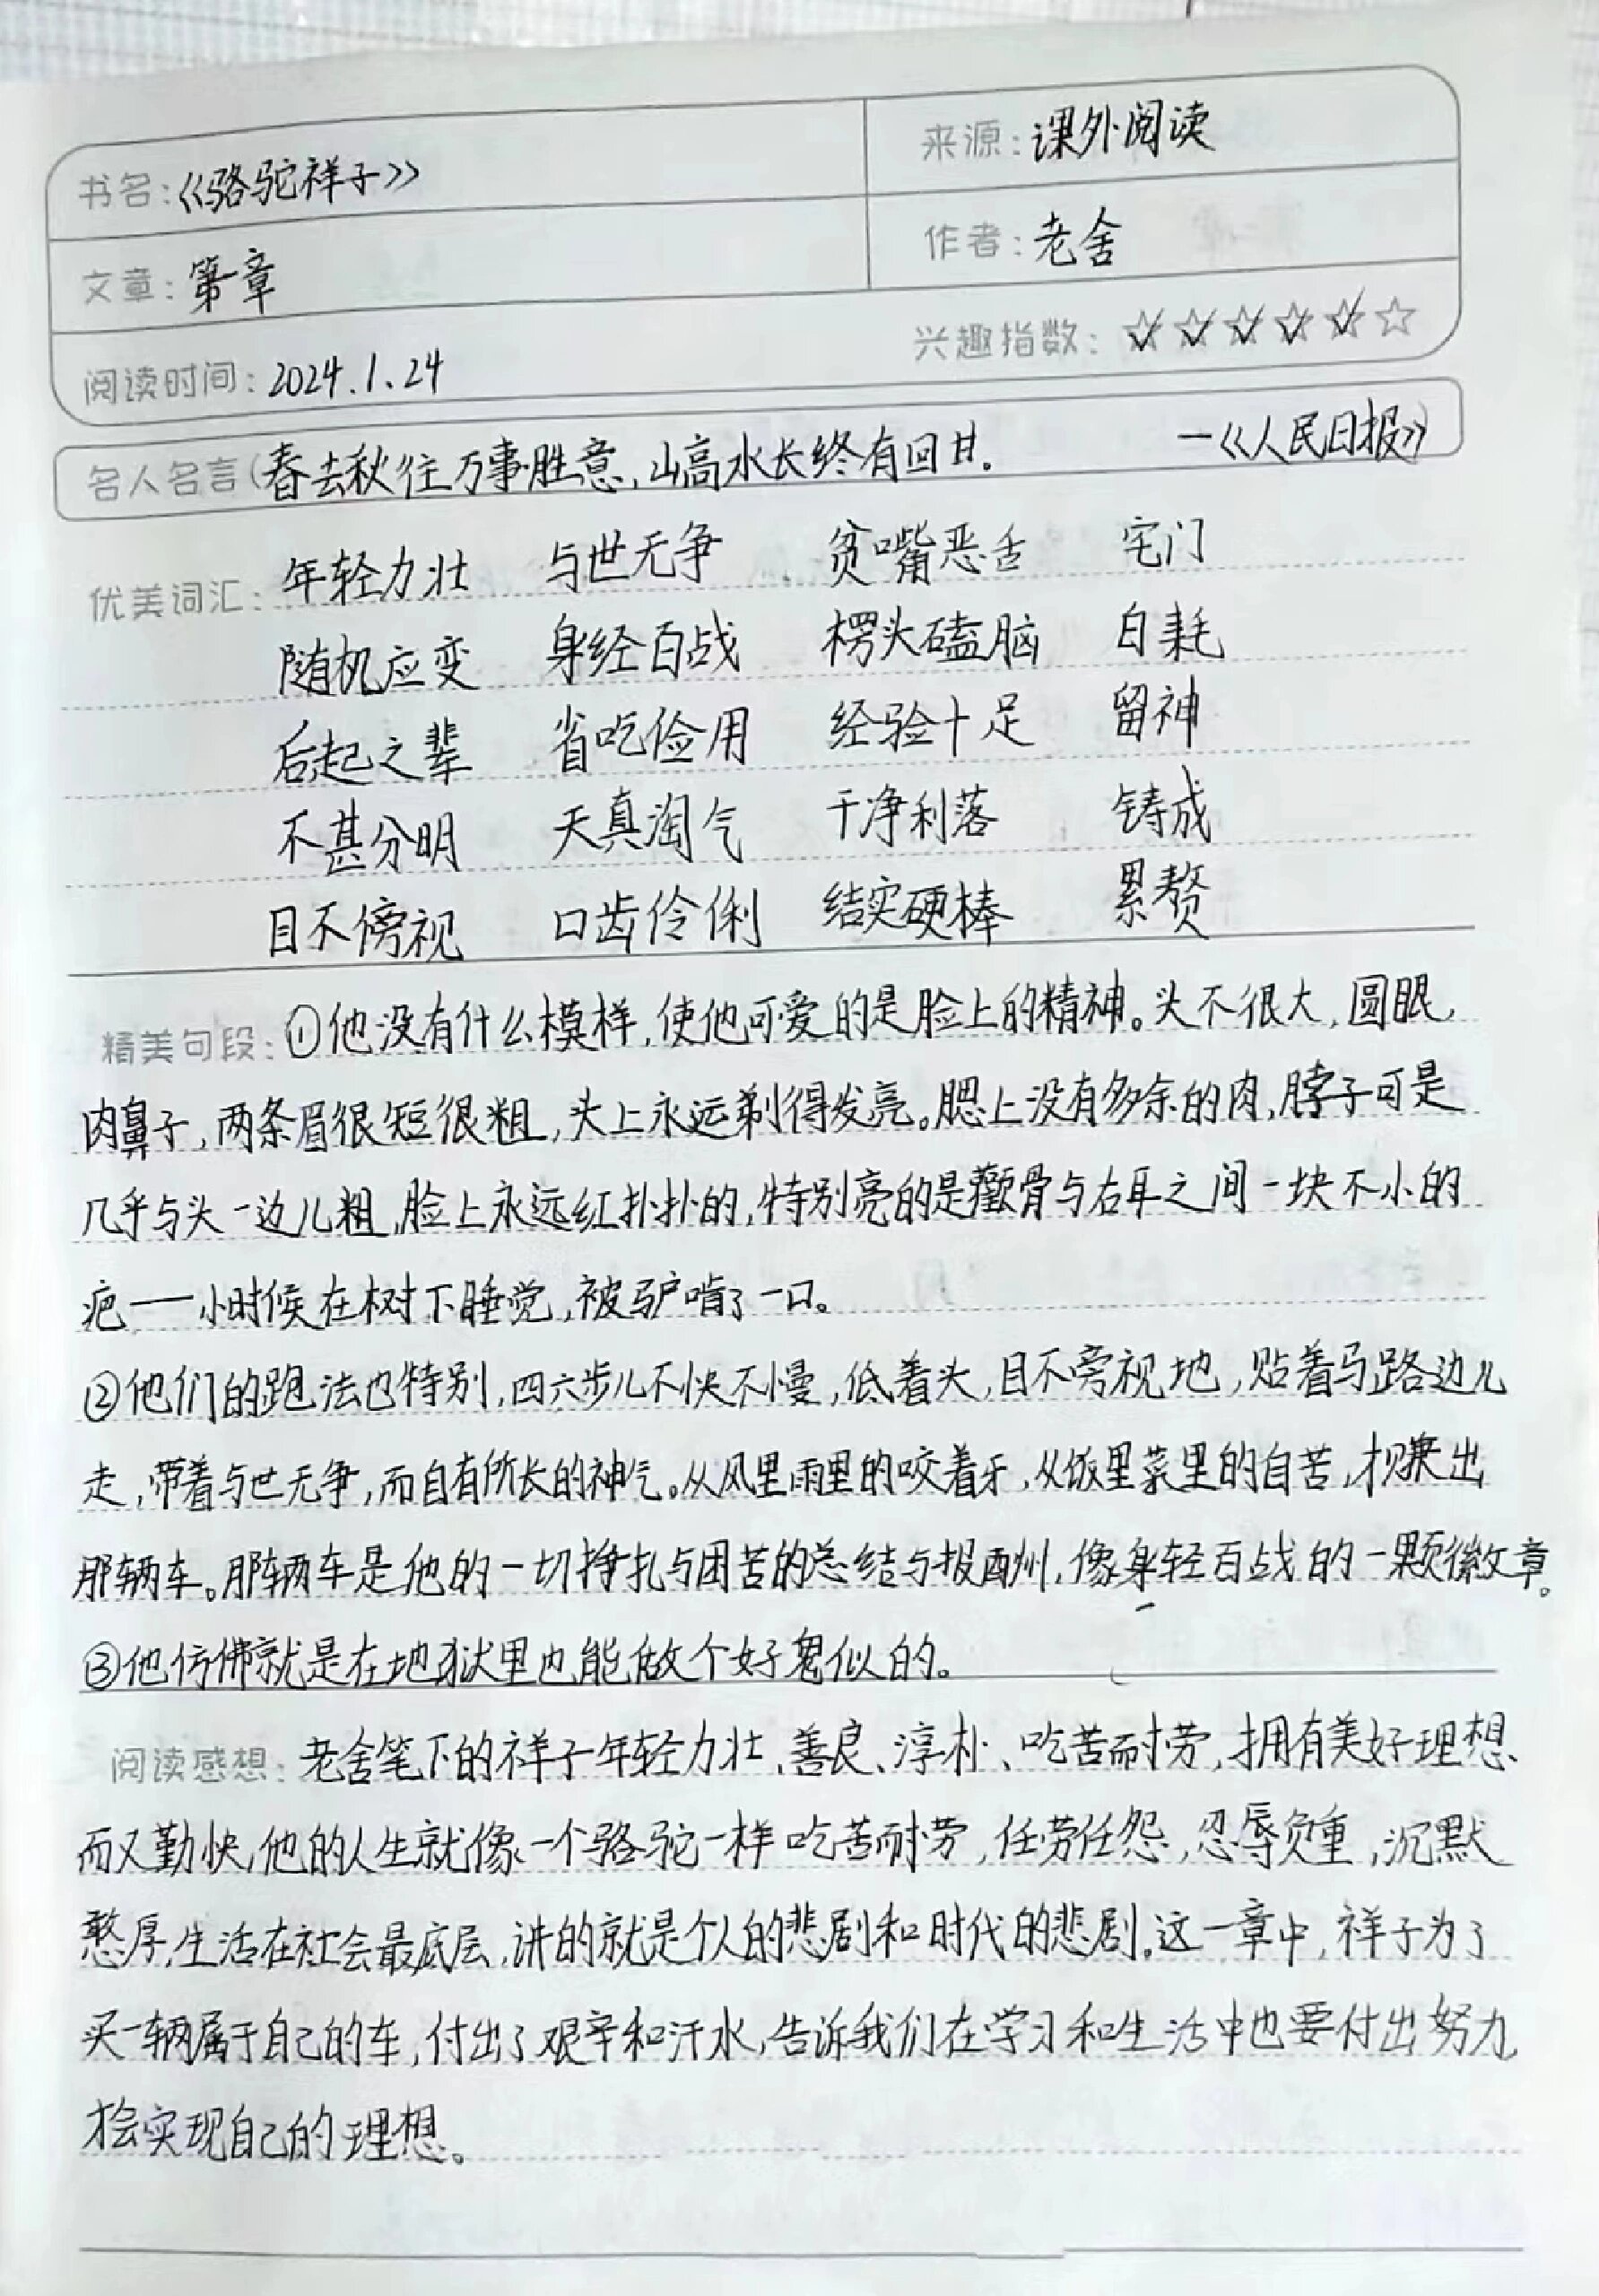 书名:《骆驼祥子》 来源:课外阅读
文章:第一章 作者:老舍
阅读时间:2024.1.24 兴趣指数:
名人名言(春去秋往万事胜意,山高水长终有回甘。 —《人民日报》
优美词汇: 年轻力壮 与世无争 贫嘴恶舌 宅门
随机应变 身经百战 楞头磕脑 白耗
后起之辈 省吃俭用 经验十足 留神
不甚分明 天真淘气 干净利落 铸成
目不傍视 口齿伶俐 结实硬棒 累赘
精美句段:①他没有什么模样,使他可爱的是脸上的精神。头不很大,圆眼,
肉鼻子,两条眉很短很粗,头上永远剃得发亮。腮上没有多余的肉,脖子可是
几乎与头一边儿粗,脸上永远红扑扑的,特别亮的是颧骨与右耳之间一块不小的
疤——小时候在树下睡觉,被驴啃了一口。
②他们的跑法也特别,四六步儿不快不慢,低着头,目不旁视地,贴着马路边儿
走,带着与世无争,而自有所长的神气。从风里雨里的咬着牙,从饭里菜里的自苦,才赚出
那辆车。那辆车是他的一切挣扎与困苦的总结与报酬,像身轻百战的一颗徽章。
③他仿佛就是在地狱里也能做个好鬼似的。
阅读感想:老舍笔下的祥子年轻力壮、善良、淳朴、吃苦耐劳,拥有美好理想
而又勤快,他的人生就像一个骆驼一样吃苦耐劳,任劳任怨,忍辱负重,沉默
憨厚,生活在社会最底层,讲的就是个人的悲剧和时代的悲剧。这一章中,祥子为了
买一辆属于自己的车,付出了艰辛和汗水,告诉我们在学习和生活中也要付出努力
才会实现自己的理想。